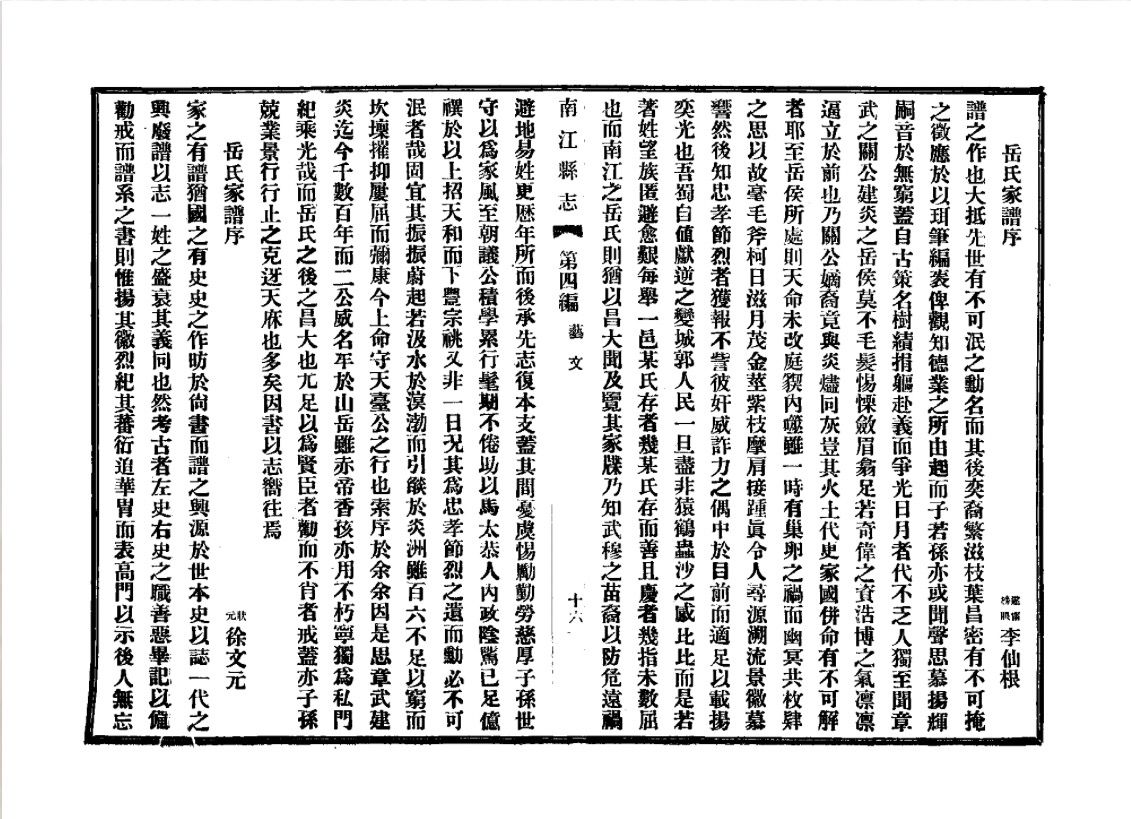 岳氏家譜序 李仙根
譜之作也大抵先世有不可泯之勳名而其後奕裔繁滋枝葉昌密有不可掩
之徵應於以珥筆編袠俾觀知德業之所由起而子若孫亦或聞聲思慕揚輝
嗣音於無窮蓋自古策名樹績捐軀赴義而爭光日月者代不乏人獨至聞章
武之關公建炎之岳侯莫不毛髮惕慄斂眉翕足若奇偉之資浩博之氣凛凛
逼立於前也乃關公嫡裔竟與炎燼同灰豈其火土代史家國併命有不可解
者耶至岳侯所處則天命未改庭猰內噬雖一時有巢卵之禍而幽冥共枚肄
之思以故毫毛斧柯日滋月茂金莖紫枝摩肩接踵眞令人尋源溯流景徽慕
響然後知忠孝節烈者獲報不訾彼奸威詐力之偶中於目前而適足以載揚
奕光也吾蜀自値獻逆之變城郭人民一旦盡非猿鶴蟲沙之感比比而是若
著姓望族匿避愈艱每舉一邑某氏存者幾某氏存而善且慶者幾指未數屈
也而南江之岳氏則猶以昌大聞及覽其家牒乃知武穆之苗裔以防危遠禍
南江縣志 第四編 藝文 十六
避地易姓更歷年所而後承先志復本支蓋其間憂虞惕勵勤勞慈厚子孫世
守以爲家風至朝議公積學累行髦期不倦助以馬太恭人內政陰騭已足億
禩於以上招天和而下豐宗祧又非一日况其爲忠孝節烈之遺而勳必不可
泯者哉固宜其振振蔚起若汲水於溟渤而引燄於炎洲雖百六不足以窮而
坎壈摧抑屢屈而彌康今上命守天臺公之行也索序於余余因是思章武建
炎迄今千數百年而二公威名平於山岳雖赤帝香孩亦用不朽寧獨爲私門
紀乘光哉而岳氏之後之昌大也尤足以爲賢臣者勸而不肖者戒蓋亦子孫
兢業景行行止之克迓天庥也多矣因書以志嚮往焉
岳氏家譜序 狀元徐文元
家之有譜猶國之有史史之作昉於尙書而譜之興源於世本史以誌一代之
興廢譜以志一姓之盛衰其義同也然考古者左史右史之職善惡畢記以備
勸戒而譜系之書則惟揚其徽烈紀其蕃衍追華胄而表高門以示後人無忘